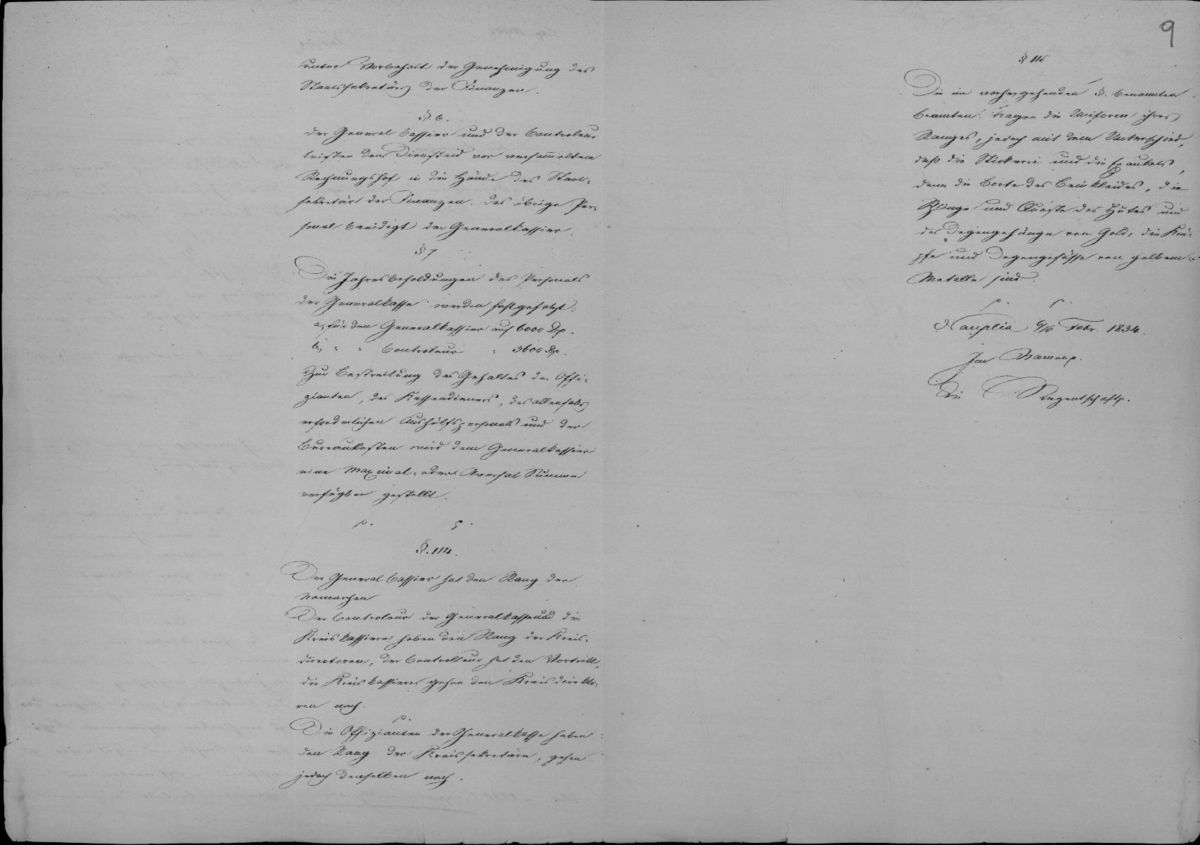 unter Vorbehalt der Genehmigung des
Staatssekretärs der Finanzen.
§ 6.
Der General Cassier und der Controleur
leisten den Diensteid vor versammeltem
Rechnungshof in die Hände des Staats-
sekretär der Finanzen. das übrige Per-
sonal beeidigt der Generalkassier.
§ 7
Die Jahresbesoldungen des Personals
der Generalkasse werden festgesetzt.
a, für den Generalkassier auf 6000 Dr.
b, " " Controleur " 3600 Dr.
Zur Bestreitung des Gehaltes der Offi-
zianten, des Kassendieners, des allenfalls
erforderlichen Aushülfspersonals und der
Bureaukosten wird dem Generalkassier
eine Maximal- oder Aversal Summe
verfügbar gestellt.
§. 114.
Der General Cassier hat den Rang der
Nomarchen
Der Controleur der Generalkasse und die
Kreiskassiere haben den Rang der Kreis-
directoren, der Controlleur hat den Vortritt,
die Kreiskassiere gehen den Kreisdirekto-
ren nach.
Die Offizianten der Generalkasse haben
den Rang der Kreissekretäre, gehen
jedoch denselben nach.
9
§ 115
Die im vorhergehenden §. benannten
Beamten tragen die Uniform ihres
Ranges, jedoch mit dem Unterschied,
daß die Stickerei und die Epaulets,
dann die Borte des Beinkleides, die
Schlinge und Quaste des Hutes und
des Degengehänge von Gold, die Knö-
pfe und Degengefässe von gelbem
Metalle sind.
Nauplia Febr. 1834.
Im Namen p.
Die Regentschaft.